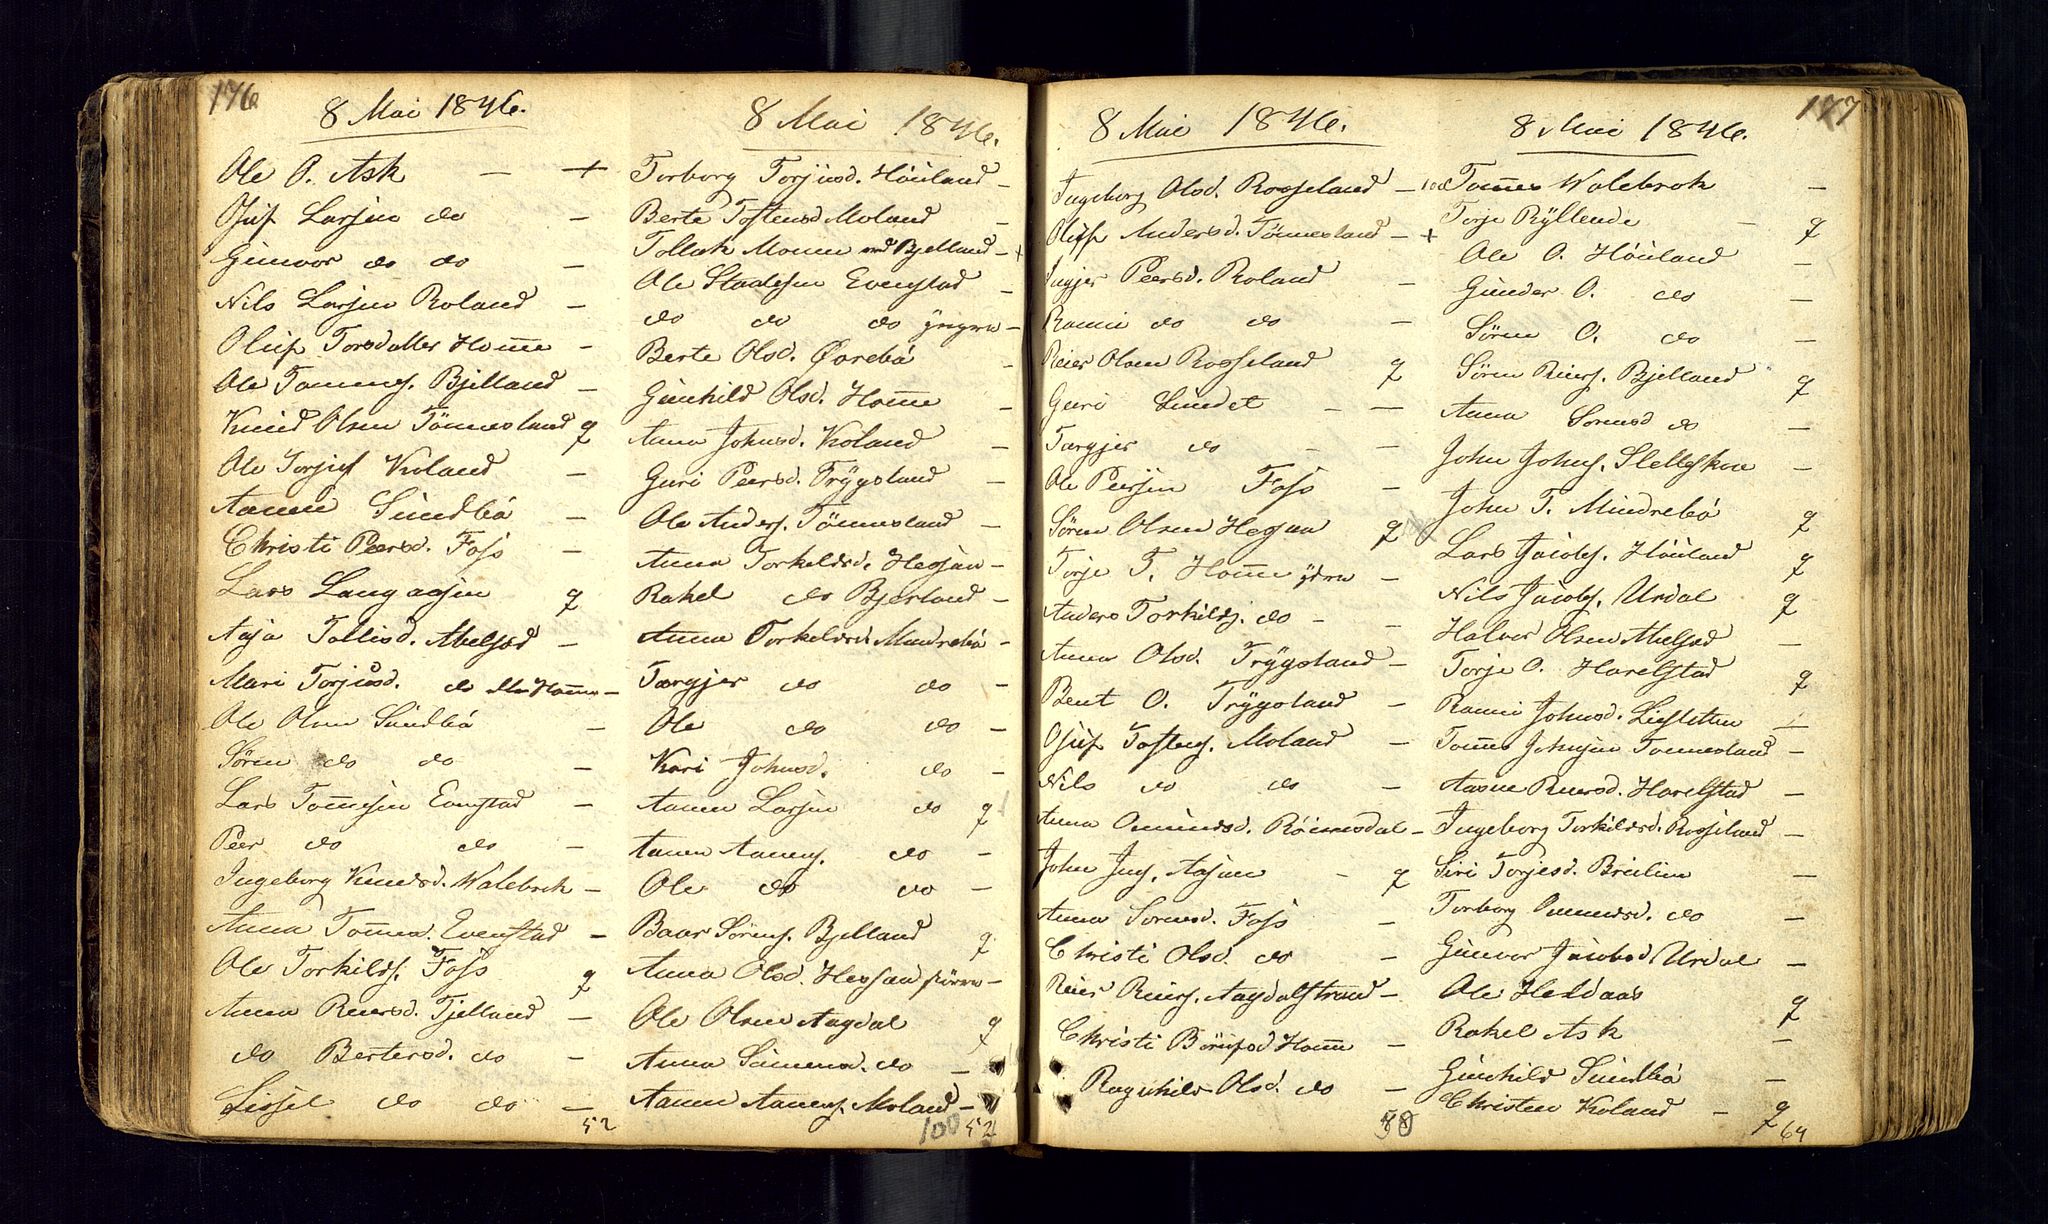 176
8 Mai 1846.
Ole O. Ask — +
Oluf Larsen do —
Gunvor do do —
Nils Larsen Roland —
Oluf Torsdatter Homme —
Ole Tommes. Bjelland —
Knud Olsen Tönnesland q
Ole Torjus Roland —
Aanen Sundbö —
Christi Peersd. Foss —
Lars Langaasen q
Aasa Tollisd. Abelsæd —
Mari Torjusd. do Homme —
Ole Olsen Sundbö —
Sören do do —
Lars Tommesen Evenstad —
Peer do do —
Ingeborg Knudsd. Walebrok —
Anna Tommes. Evenstad —
Ole Torkilds. Foss q
Anna Reiersd. Fjelland —
do Bertersd. do —
Sissel do do —
52
8 Mai 1846.
Torborg Torjusd. Höiland —
Berte Tostensd Moland —
Tollak Monen ved Bjelland — +
Ole Staalesen Evenstad —
do do do yngre —
Berte Olsd. Övrebö —
Gunhild Olsd. Homme —
Anna Johnsd. Roland —
Guri Peersd. Trygsland —
Ole Anders. Tönnesland —
Anna Torkildsd. Hessaa —
Rakel do Bjerland —
Anna Torkildsd. Mindrebö —
Torgjer do do —
Ole do do —
Kari Johnsd. do —
Aanen Larsen do q
Aanen Aanens. do —
Ole do do —
Baar Sörens. Bjelland q
Anna Olsd. Hessaa större —
Ole Olsen Aagdal q
Anna Simensd. do —
Aanen Aanens. Moland —
100 52
8 Mai 1846.
Ingeborg Olsd. Rosseland — 100
Oluf Andersd. Tönnesland — +
Ingjer Peersd. Roland —
Ranni do do —
Reier Olsen Rosseland q
Guri Sundet — —
Torgjer do — —
Ole Peersen Foss —
Sören Olsen Hessaa q
Torje T. Homme ydre —
Anders Torkilds. do — —
Anna Olsd. Trygsland —
Bent O. Trygsland —
Osuf Tostens. Moland —
Nils do do —
Anna Omundsd. Röinesdal —
John Jens. Aasen — q
Anna Sorensd. Foss —
Christi Olsd. do —
Reier Reiers. Aagdalstrand —
Christi Börufsd Homme —
Ragnhild Olsd. do —
50
177
8 Mai 1846.
Tommes Walebrok —
Torje Ryllende — q
Ole O. Höiland —
Gunder O. do —
Sören O. do —
Sören Reiers. Bjelland q
Anna Sorensd do —
John Johns. Slettskou —
John T. Mindrebö q
Lars Jacobs. Höiland q
Nils Jacobs. Urdal q
Halvor Olsen Abelsæd —
Torje O. Harelstad q
Ranni Johnsd. Liesletten —
Tommes Johnsen Tonnesland —
Aasne Reiersd. Harelstad —
Ingeborg Torkildsd. Rosseland —
Siri Torjesd. Breilien —
Torborg Omundsd. do —
Gunvor Jacobsd. Urdal —
Ole Heldaas q
Rakel Ask —
Gunhild Sundbö —
Christen Roland — q
64